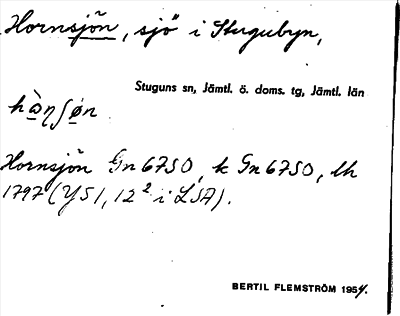 Hornsjön, sjö i Stugubyn,
Stuguns sn, Jämtl. ö. doms. tg, Jämtl. län
Hornsjön Gn 67SO, k Gn 67SO, lh
1797 (Y51, 12² i LSA).
BERTIL FLEMSTRÖM 1954.